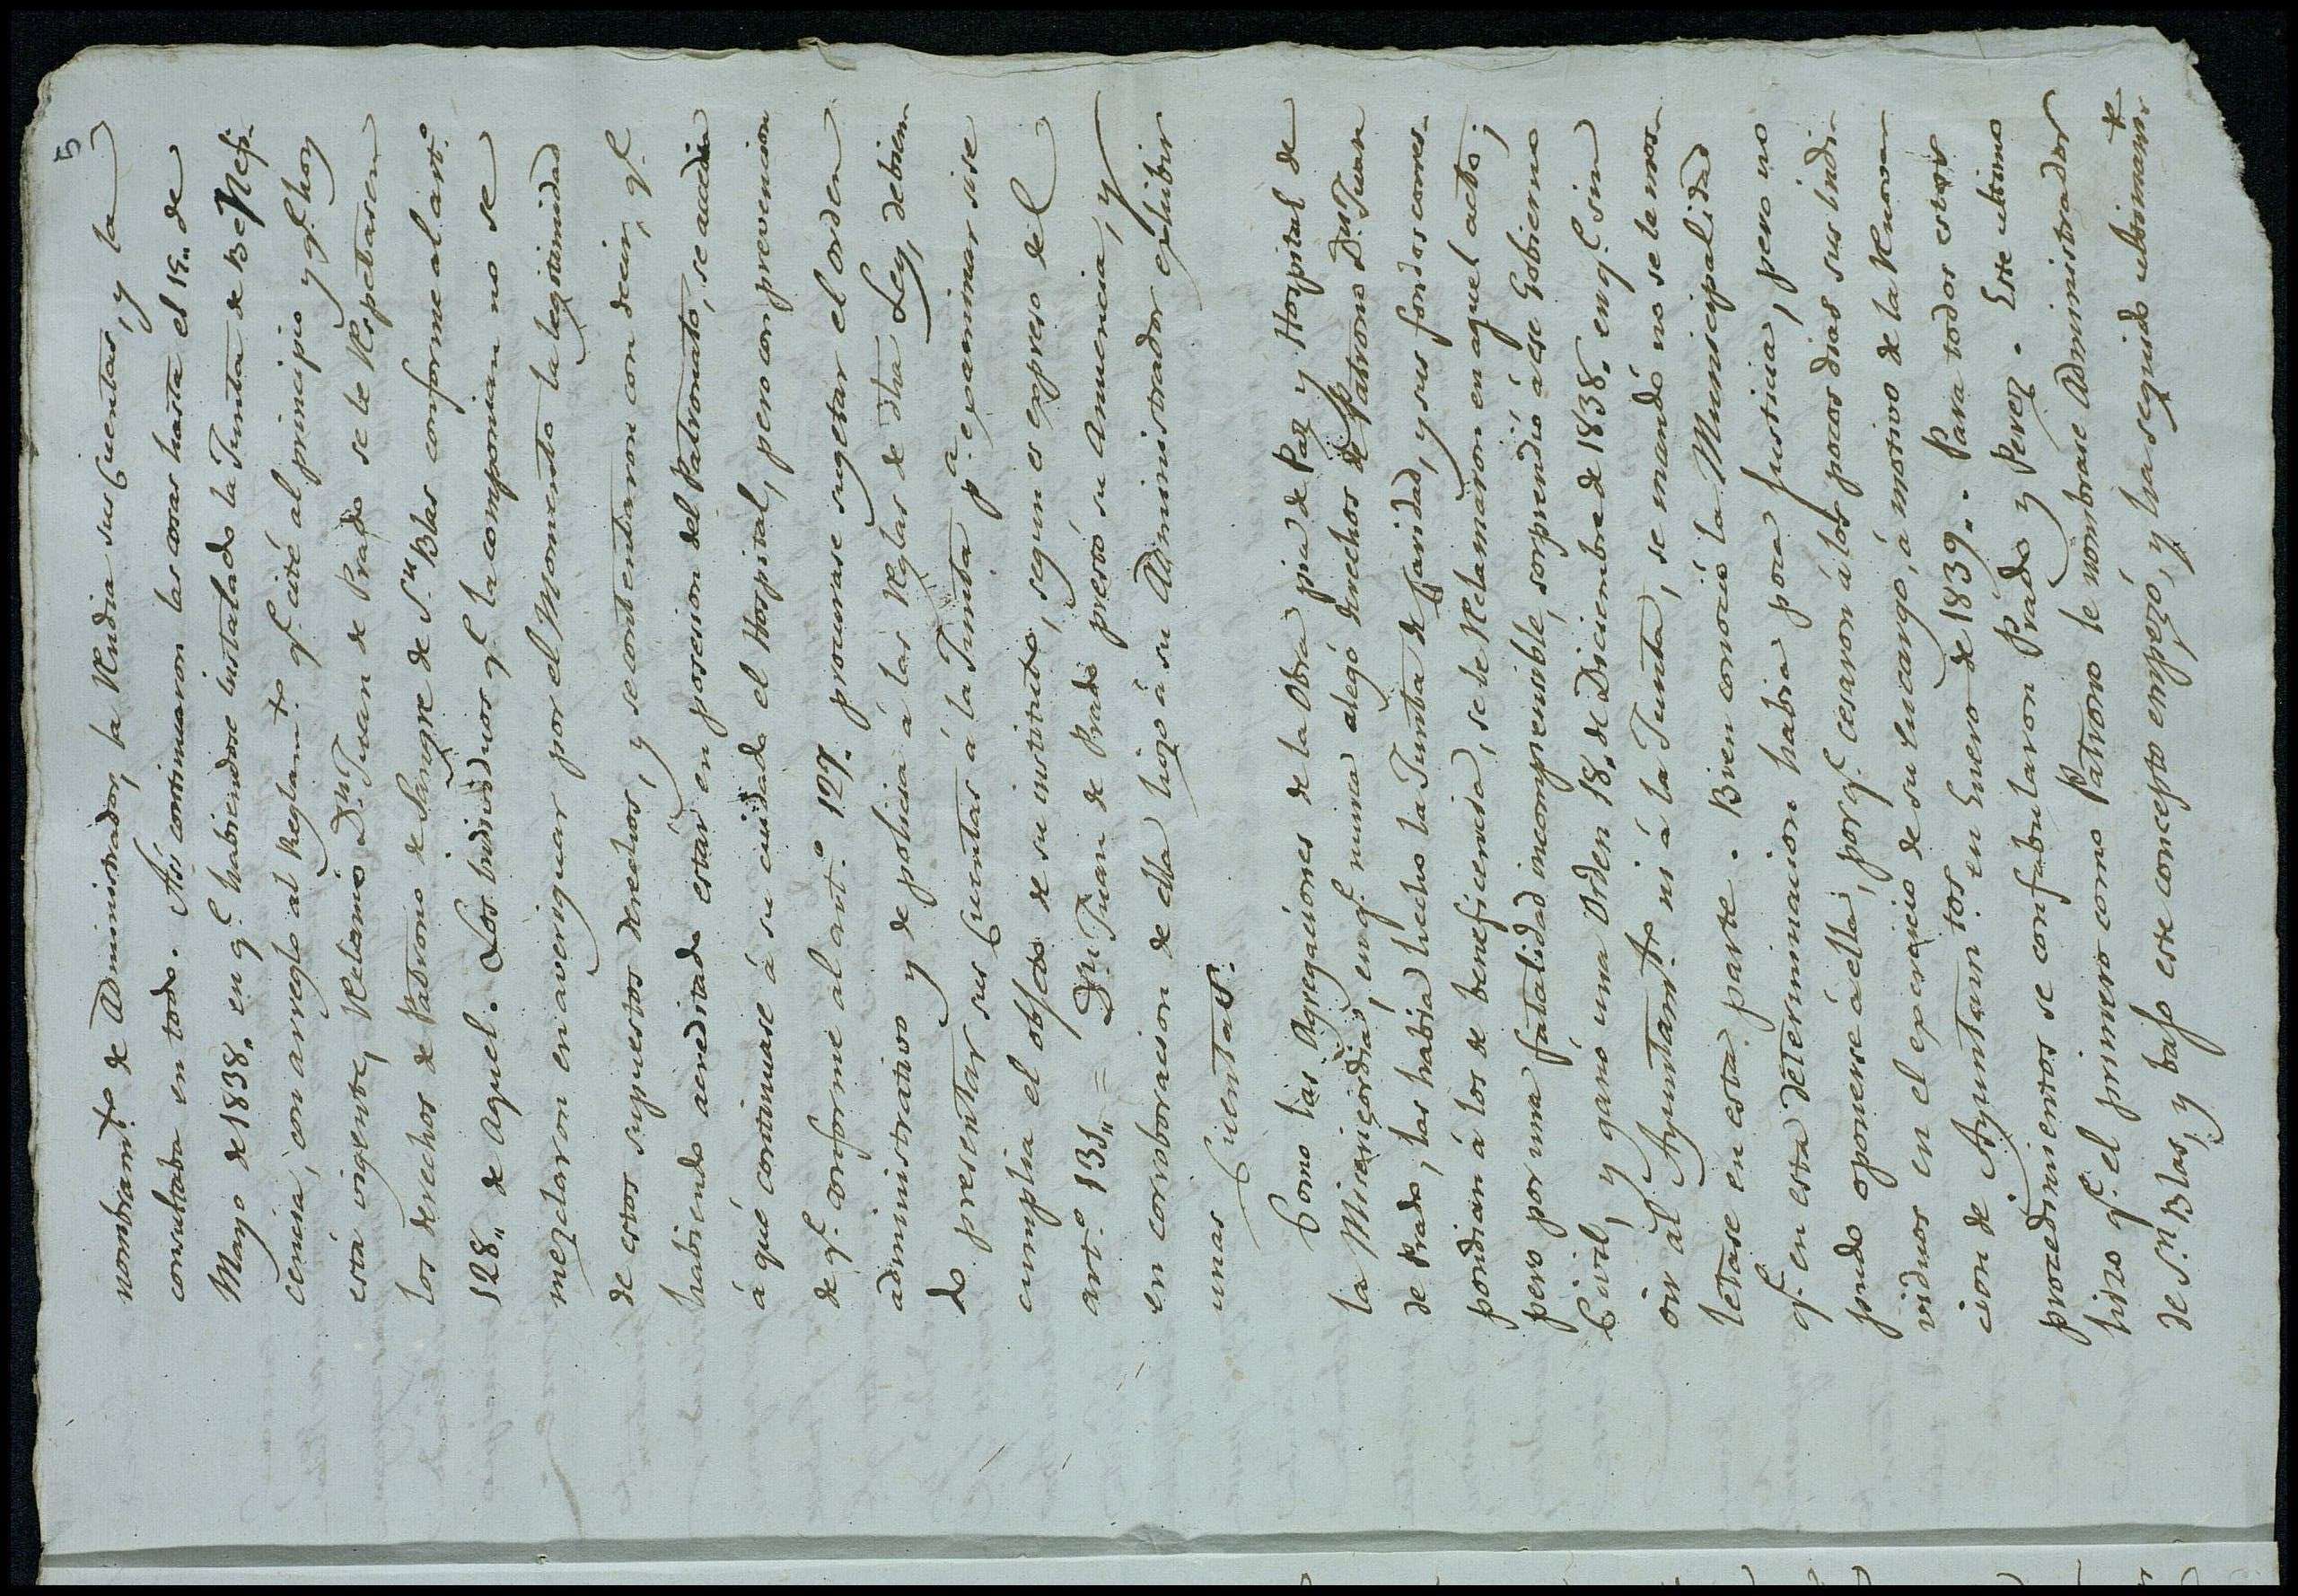 5
nombram.to de Administrador, la Rendia sus Cuentas, y la
consultaba en todo. Asi continuaron las cosas hasta el 15,, de
Mayo de 1838,, en q.e habiendose instalado la Junta de Benefi-
cencia, con arreglo al Reglam.to q.e cité al principio y q.e hoy
está vigente, Reclamó D.n Juan de Prado se le Respetasen
los derechos de Patrono de Sangre de S.n Blas conforme al art.o
128,, de aquel. Los Individuos q.e la componian no se
mezclaron en averiguar por el Momento la legitimidad
de estos supuestos derechos, y se contentaron con decir, q.e
habiendo acreditado estar en posesion del Patronato, se accedia
á que continuase á su cuidado el Hospital, pero con prevencion
de q.e conforme al art.o 127. procurase sugetar el orden
administrativo y de policia á las Reglas de dha Ley, debien-
do presentar sus Cuentas á la Junta p.a examinar si se
cumplia el objeto de su instituto, segun es expreso del
art.o 131,, = D.n Juan de Prado prestó su anuencia, y
en corroboracion de ella hizo á su Administrador exhibir
unas Cuentas.
Como las Agregaciones de la Obra pia de Paz y Hospital de
la Misericordia, en q.e nunca alegó derechos de Patrono D.n Juan
de Prado, las habia hecho la Junta de Caridad, y sus fondos corres-
pondian á los de beneficencia, se le Reclamaron en aquel acto;
pero por una fatalidad incomprensible, sorprendió á ese Gobierno
Civil, y ganó una Orden 18,, de Diciembre de 1838,, en q.e sin
oir al Ayuntam.to ni á la Junta, se mandó no se le moles-
tase en esta parte. Bien conoció la Municipalidad
q.e en esta determinacion habia poca justicia, pero no
pudo oponerse á ella, porq.e cesaron á los pocos dias sus indi-
viduos en el exercicio de su encargo, á motivo de la Renova-
cion de Ayuntam.tos en Enero de 1839,,. Para todos estos
procedimientos se confabularon Prado y Perez. Este ultimo
hizo q.e el primero como Patrono le nombrase Administrador
de S.n Blas, y bajo este concepto empezó, y ha seguido ultimam.te